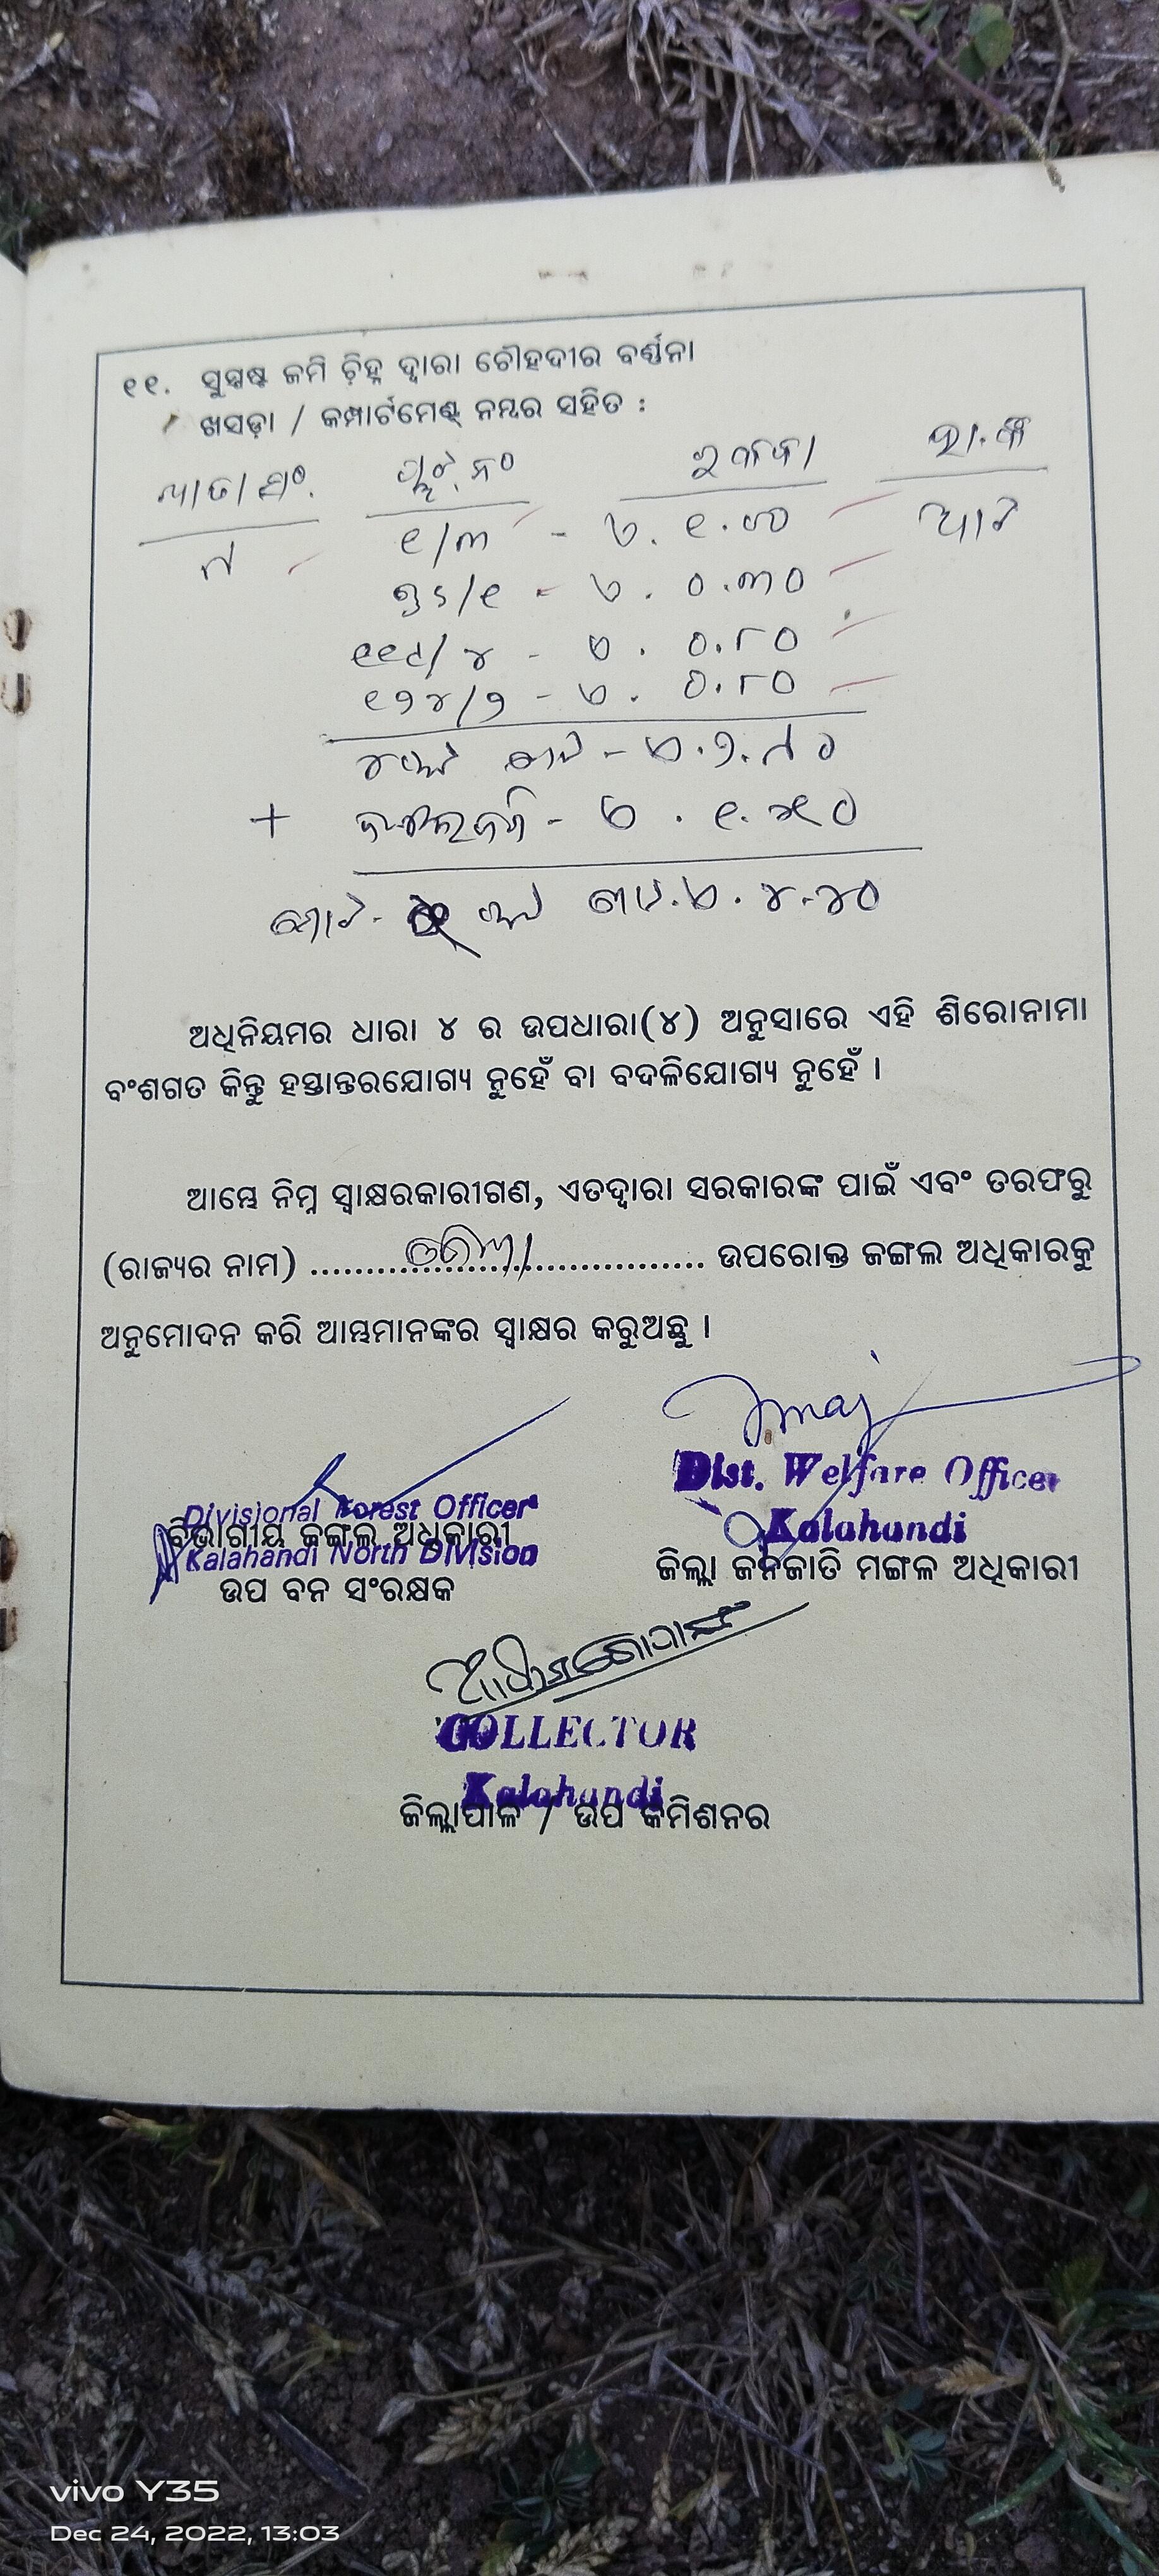 ୧୧. ସୁସ୍ପଷ୍ଟ ଜମି ଚିହ୍ନ ଦ୍ୱାରା ଚୌହଦୀର ବର୍ଣ୍ଣନା
ଖସଡ଼ା / କମ୍ପାର୍ଟମେଣ୍ଟ୍ ନମ୍ବର ସହିତ :
ଖାତା ନଂ. ପ୍ଲଟ୍ ନଂ ରକବା
୧/୩ - ଏ. ୧.୦୦
/୧ - ଏ. ୦.୩୦
୧୧୯/୪ - ଏ. ୦.୮୦
୧୨୪/୨ - ଏ. ୦.୮୦
ଏ.୨.୯୦
+ - ଏ. ୧.୫୦
ମୋଟ - ଏ. ୪.୪୦
ଅଧିନିୟମର ଧାରା ୪ ର ଉପଧାରା(୪) ଅନୁସାରେ ଏହି ଶିରୋନାମା
ବଂଶଗତ କିନ୍ତୁ ହସ୍ତାନ୍ତରଯୋଗ୍ୟ ନୁହେଁ ବା ବଦଳିଯୋଗ୍ୟ ନୁହେଁ ।
ଆମ୍ଭେ ନିମ୍ନ ସ୍ୱାକ୍ଷରକାରୀଗଣ, ଏତଦ୍ୱାରା ସରକାରଙ୍କ ପାଇଁ ଏବଂ ତରଫରୁ
(ରାଜ୍ୟର ନାମ) ଓଡିଶା ଉପରୋକ୍ତ ଜଙ୍ଗଲ ଅଧିକାରକୁ
ଅନୁମୋଦନ କରି ଆମ୍ଭମାନଙ୍କର ସ୍ୱାକ୍ଷର କରୁଅଛୁ ।
Dist. Welfare Officer
Kalahandi
ଜିଲ୍ଲା ଜନଜାତି ମଙ୍ଗଳ ଅଧିକାରୀ
Divisional Forest Officer
ବିଭାଗୀୟ ଜଙ୍ଗଲ ଅଧିକାରୀ
Kalahandi North Division
ଉପ ବନ ସଂରକ୍ଷକ
COLLECTOR
Kalahandi
ଜିଲ୍ଲାପାଳ / ଉପ କମିଶନର
vivo Y35
Dec 24, 2022, 13:03